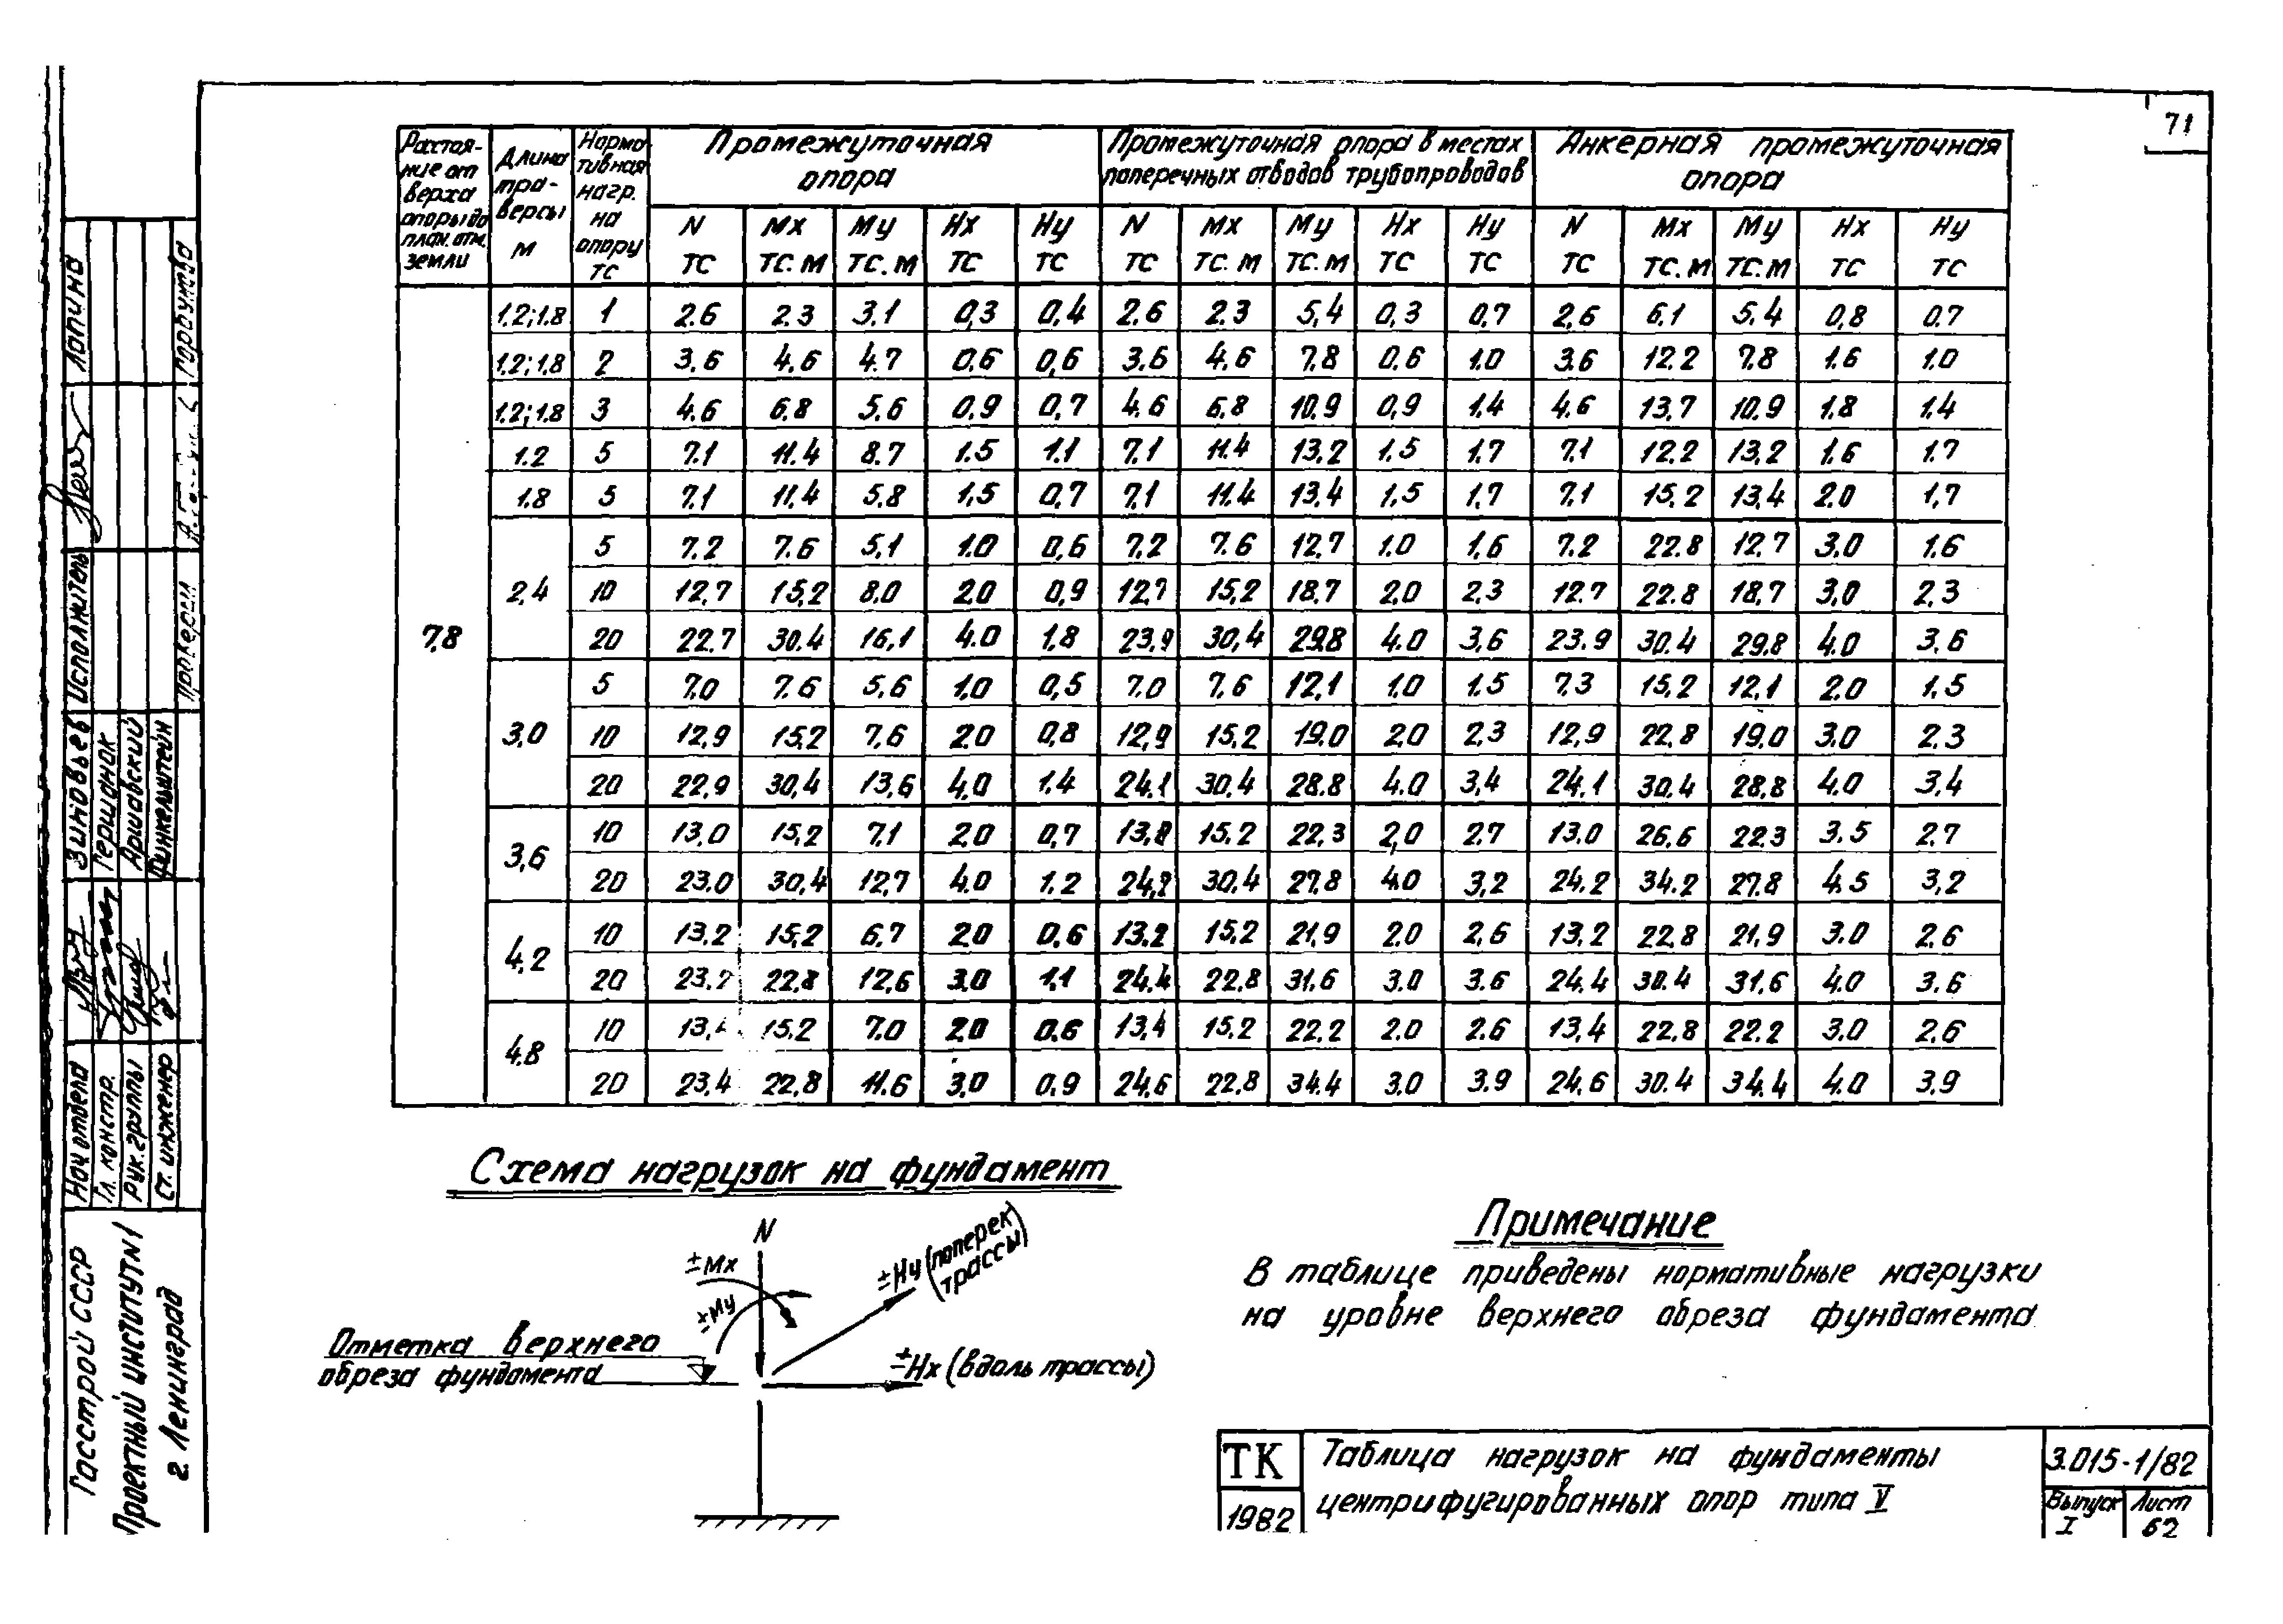 71
Расстоя-
ние от
верха
опоры до
план. отм.
земли
Длина
тра-
версы
м
Норма
тивная
нагр.
на
опору
тс
Промежуточная
опора
Промежуточная опора в местах
поперечных отводов трубопроводов
Анкерная промежуточная
опора
N Mx My Hx Hy N Mx My Hx Hy N Mx My Hx Hy
тс тс.м тс.м тс тс тс тс.м тс.м тс тс тс тс.м тс.м тс тс
7,8
1.2; 1.8 1 2.6 2.3 3.1 0,3 0,4 2.6 2.3 5,4 0,3 0,7 2,6 6.1 5.4 0,8 0.7
1.2; 1.8 2 3.6 4.6 4.7 0.6 0,6 3.6 4.6 7.8 0.6 1.0 3.6 12.2 7.8 1.6 1.0
1.2; 1.8 3 4.6 6.8 5.6 0.9 0,7 4.6 6.8 10.9 0,9 1.4 4.6 13.7 10.9 1.8 1.4
1.2 5 7.1 11.4 8.7 1.5 1.1 7.1 11.4 13.2 1.5 1.7 7.1 12.2 13,2 1.6 1.7
1.8 5 7.1 11.4 5.8 1,5 0,7 7.1 11.4 13.4 1,5 1.7 7.1 15.2 13,4 2.0 1,7
2,4
5 7.2 7.6 5,1 1.0 0,6 7.2 7.6 12.7 1.0 1.6 7.2 22.8 12.7 3.0 1.6
10 12,7 15,2 8.0 2.0 0,9 12,7 15,2 18.7 2,0 2.3 12.7 22.8 18,7 3,0 2.3
20 22.7 30.4 16,1 4.0 1,8 23,9 30,4 29.8 4.0 3,6 23.9 30.4 29.8 4.0 3.6
3,0
5 7.0 7.6 5.6 1.0 0,5 7.0 7.6 12,1 1.0 1.5 7.3 15.2 12.1 2.0 1.5
10 12,9 15,2 7,6 2.0 0,8 12,9 15.2 19.0 2.0 2.3 12,9 22,8 19.0 3.0 2.3
20 22,9 30,4 13,6 4.0 1.4 24.1 30.4 28.8 4.0 3,4 24.1 30.4 28,8 4.0 3,4
3,6
10 13,0 15,2 7,1 2,0 0,7 13,0 15.2 22,3 2,0 2.7 13.0 26.6 22.3 3.5 2.7
20 23.0 30,4 12,7 4.0 1.2 24,2 30.4 27.8 4.0 3,2 24.2 34.2 27.8 4.5 3,2
4,2
10 13,2 15,2 6.7 2.0 0.6 13.2 15.2 21,9 2.0 2,6 13,2 22.8 21.9 3.0 2.6
20 23.2 22.8 12,6 3.0 1,1 24.4 22,8 31.6 3.0 3.6 24.4 30.4 31,6 4.0 3.6
4,8
10 13,4 15.2 7.0 2.0 0.6 13,4 15.2 22,2 2.0 2.6 13,4 22.8 22.2 3.0 2.6
20 23.4 22,8 11.6 3,0 0,9 24.6 22.8 34.4 3.0 3.9 24.6 30.4 34.4 4.0 3.9
Схема нагрузок на фундамент
N
±Mx
±My
±Hy (поперек
трассы)
±Hx (вдоль трассы)
Отметка верхнего
обреза фундамента
Примечание
В таблице приведены нормативные нагрузки
на уровне верхнего обреза фундамента
ТК
1982
Таблица нагрузок на фундаменты
центрифугированных опор типа V
3.015-1/82
Выпуск
I
Лист
62
Госстрой СССР
Проектный институт N1
г. Ленинград
Нач отдела
Зиновьев
Исполнитель
Лапина
Гл. констр.
Гершанок
Рук. группы
Аршавский
Ст. инженер
Финкельштейн
Проверил